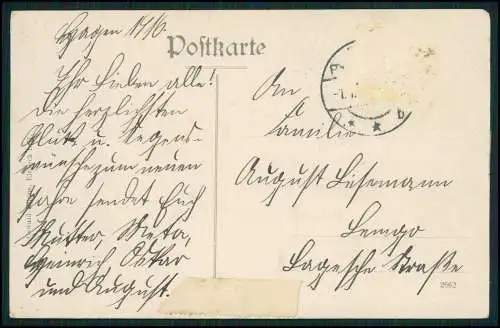 Hagen
Postkarte
Ihr lieben alle!
Die herzlichsten
Glück u. Segens-
wünsche zum neuen
Jahre sendet Euch
Mutter, Meta,
Heinrich, Oskar
und August.
An
Familie
August Eisemann
Lemgo
Lagesche Straße
2662